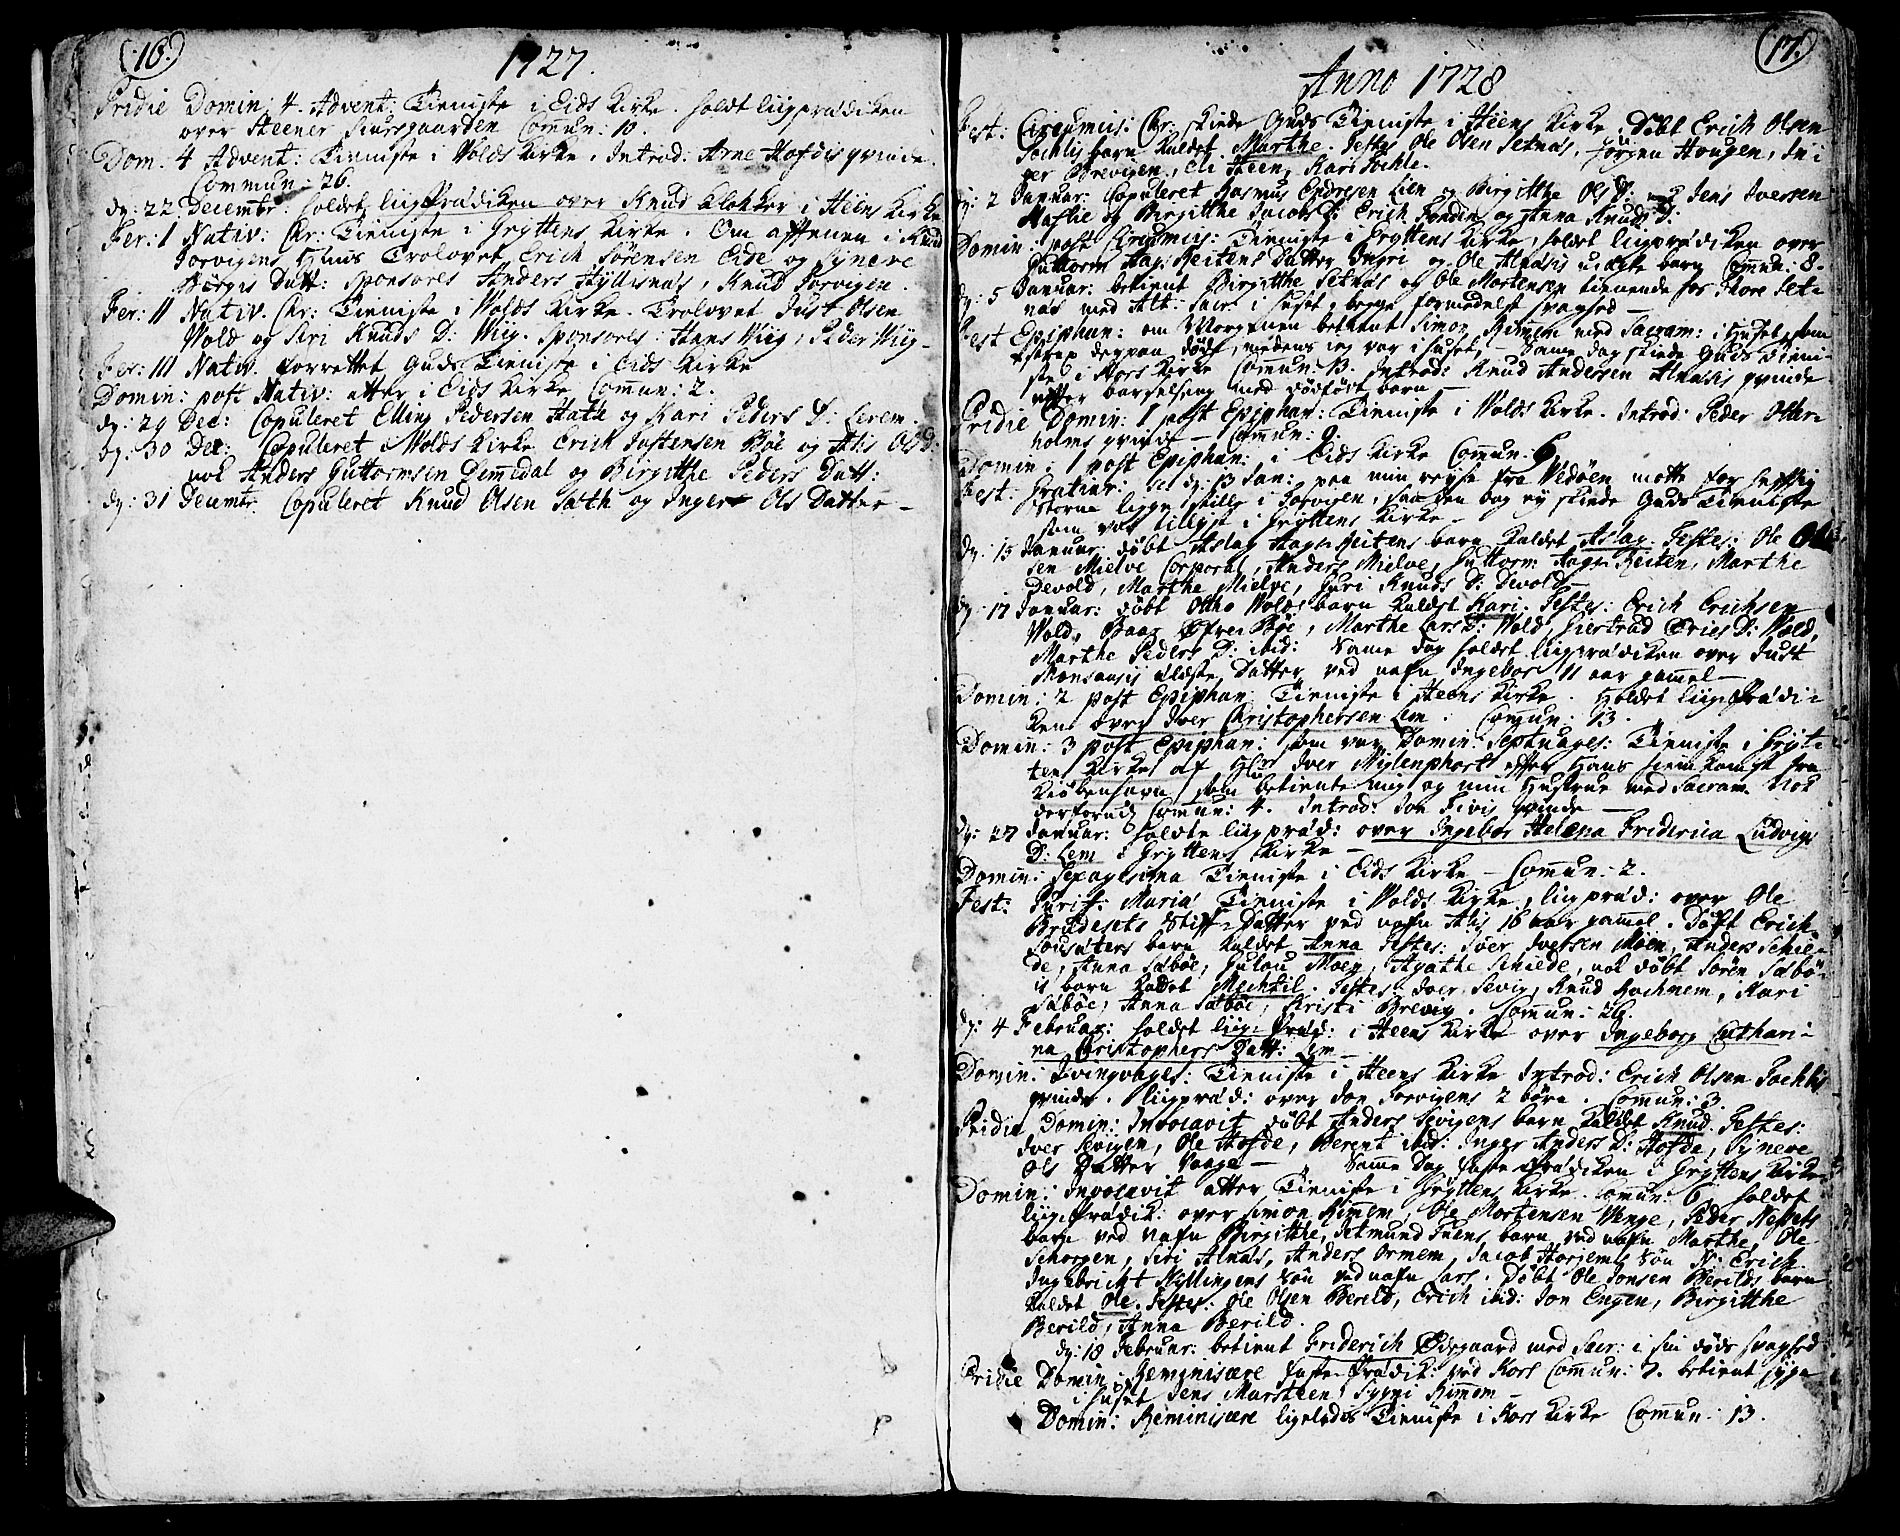 (16.)
1727.
Pridie Domin: 4. Advent: Tieniste i Eids Kirke. holdt liigprædiken
over Steener Siursgaarden Com̄un: 10.
Dom. 4 Advent: Tieniste i Volds Kirke. Introd: Arne Hofdis qvinde.
Commun: 26.
dg: 22 Decembr. holdet liigPrædiken over Knud Klokker i Heens Kirke
Fer: I Nativ: Chr: Tieniste i Gryttens Kirke. Om aftenen i Knud
Torvigens Huus Trolovet Erich Sørensen Eide og Syneve
Børgis Datt: Sponsores Anders Hyllisnæs, Knud Torvigen.
Fer: II Nativ. Chr: Tieniste i Volds Kirke. Trolovet Just Olsen
Vold og Siri Knuds D: Wiig. Sponsores: Hans Wiig, Peder Wiig-
Fer: III Nativ. forrettet Guds Tieniste i Eids Kirke
Domin: post Nativ: atter i Eids Kirke Com̄un: 2.
dg: 29 Dec: Copuleret Elling Pedersen Hatle og Kari Peders D: Lerem
dg: 30 Dec: Copuleret i Volds Kirke Erich Jostensen Bøe og Alis Ols D:
nok Anders Guttormsen Dem̄edal og Birgitthe Peders Datt:
dg: 31 Decembr. Copuleret Knud Olsen Sæth og Inger Ols Datter-
(17.)
Anno 1728
Fest: Circumcis: Chr. skiede Guds Tieniste i Heens Kirke. Døbt Erich Olsen
Sochlis barn kaldet Marthe. Testes Ole Olsen Setnæs, Jørgen Hougen, In-
ger Brevigen, Eli Heen, Kari Sochle.
dg: 2 Januar: Copuleret Rasmus Endresen Lien og Birgitthe Ols D: Jens Iversen
Haslie og Birgitthe Jacobs D: Erich og Anna Knuds D:
Domin: post Circumcis: Tieniste i Gryttens Kirke, holdet liigprædiken over
Guttorm Hag: Reitens Datter Ingri og Ole Alnæsis uægte barn Com̄un: 8.
dg: 5 Januar: betient Birgitthe Setnæs og Ole Mortensen tienende hos Thore Set-
næs med Alt: Sacr. i huset, begge formedelst svaghed-
Fest Epiphan: om Morgenen betient Simon Rimem med Sacram: i huset, som
strax derpaa døde, medens ieg var i huset,- Samme dag skiede Guds Tieni-
ste i Kors Kirke Com̄un: 13. Introd: Knud Andersen Alnæsis qvinde
efter barselseng med dødfødt barn-
Pridie Domin: 1 post Epiphan: Tieniste i Volds Kirke. Introd: Peder Oter-
holms qvinde- Com̄un: 9.
Domin: 1 post Epiphan: i Eids Kirke Com̄un: 6
Fest: dg: 13 Jan: paa min reyse fra Vedøen motte for heftig
Storm ligge stille i Torvigen, saa den dag ey skiede Guds Tieniste
som var tillyst i Gryttens Kirke-
dg: 15 Januar: døbt Aslag Hag: Reitens barn kaldet Aslag. Testes: Ole Ol-
sen Mielve Corporal, Anders Mielve, Guttorm: Hage Reiten, Marthe
Devold, Marthe Mielve, Guri Knuds D: Devold-
dg: 17 Januar: døbt Ottho Volds barn kaldet Kari. Testes: Erich Erichsen
Vold, Baar Øfre Bøe, Marthe Lars D: Vold, Giertrud Erics D: Vold,
Marthe Peders D: ibid: Same dag holdet liigprædiken over Just
Monsaasis ældste Datter ved nafn Ingebor 11 aar gam̄el-
Domin: 2 post Epiphan: Tieniste i Heens Kirke. Holdet liigPrædi-
ken over Iver Christophersen Lem. Com̄un: 13.
Domin: 3 post Epiphan: som var Domin: Septuages: Tieniste i Gryt-
tens Kirke af Hr Iver Nylenphort efter Hans hiemkomst fra
Kiøbenhavn, som betiente mig og min Hustrue med Sacram. Nok
derforuden Com̄un: 4. Introd: Jon Fivis qvinde-
dg: 27 Januar: holdte liigpræd: over Ingebor Helæna Friderica Ludvigs
D: Lem i Gryttens Kirke-
Domin: Sexagesima Tieniste i Eids Kirke- Com̄un: 2.
Fest: Purif: Mariæ Tieniste i Volds Kirke, liigpræd: over Ole
Brudesets Stiff-Datter ved nafn Alis 16 aar gam̄el. Døbt Erich
barn kaldet Anna Testes: Søer Iversen Moen, Anders Schiel-
de, Anna Sæbøe, Gulou Moen, Agathe Schielde, nok døbt Søren Sæbø-
is barn kaldet Mechtil. Testes: Iver Sevig, Knud Hochnem, Kari
Sæbøe, Anna Sæbøe, Kristi Brevig. Com̄un: 26.
dg: 4 Februar: holdet liigPræd: i Heens Kirke over Ingeborg Cathari-
na Christophers Datt: Lem-
Domin: Qvinqvages: Tieniste i Heens Kirke Introd: Erich Olsen Sochlis
qvinde. liigpræd: over Jon Torvigens 2 børn. Com̄un: 3.
Pridie Domin: Invocavit døbt Anders Sevigens barn kaldet Knud. Testes:
Iver Sevigen, Ole Hofde, Berent ibid: Inger Anders D: Hofde, Syneve
Ols Datter Vaage- Sam̄e Dag faste Prædiken i Gryttens Kirke
Domin: Invocavit atter Tieniste i Gryttens Kirke. Com̄un: 6, holdet
liigPrædik: over Simon Rimem, Ole Mortensen Venge, Peder Nessets
barn ved nafn Birgitthe, Setmund barn, ved nafn Marthe, Ole
Schorgen, Siri Alnæs, Anders Ormem, Jacob Søn N: Erich
Ingebricht Nyllingens Søn ved nafn Lars. Døbt Ole Jonsen Berilds barn
kaldet Ole. Testes: Ole Olsen Berild, Erich ibid: Jon Engen, Birgitthe
Berild, Anna Berild.
dg: 18 Februar: betient Friderich Ødegaard med Sacr: i sin døds svaghed
Pridie Domin: Reminiscere faste Prædik: ved Kors Com̄un: 7. betient syge
i huset Jens Marsteen, Sygni Rimem-
Domin: Reminiscere ligeledes Tieniste i Kors Kirke Com̄un: 13.